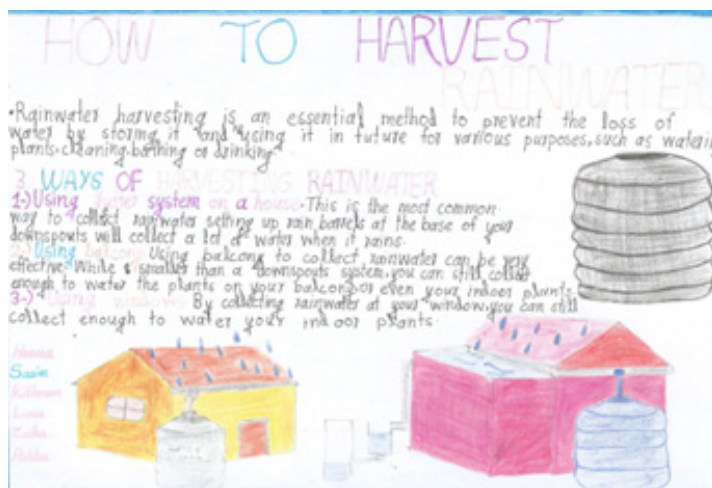 HOW TO HARVEST
RAINWATER
•Rainwater harvesting is an essential method to prevent the loss of
water by storing it and using it in future for various purposes, such as watering
plants, cleaning, bathing or drinking.
3 WAYS OF HARVESTING RAINWATER
1-) Using gutter system on a house. This is the most common
way to collect rainwater setting up rain barrels at the base of your
downspouts will collect a lot of water when it rains.
2-) Using balcony Using balcony to collect rainwater can be very
effective. While smaller than a downspouts system, you can still collect
enough to water the plants on your balcony or even your indoor plants.
3-) Using windows By collecting rainwater at your window, you can still
collect enough to water your indoor plants.